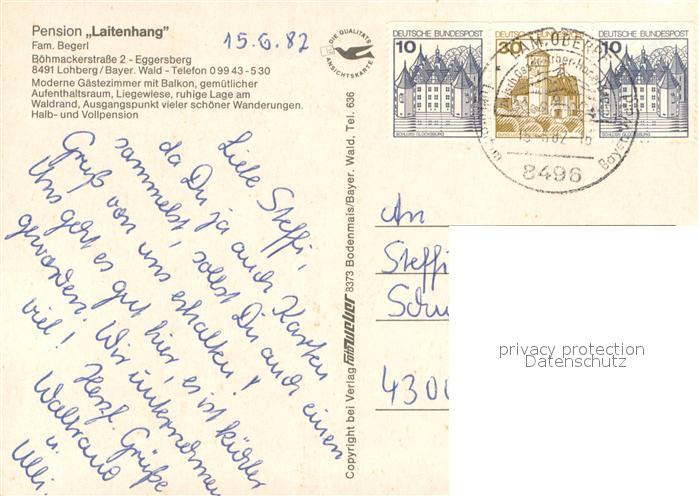 Pension „Laitenhang"
Fam. Begerl
Böhmackerstraße 2 - Eggersberg
8491 Lohberg/Bayer. Wald - Telefon 0 99 43 - 530
Moderne Gästezimmer mit Balkon, gemütlicher
Aufenthaltsraum, Liegewiese, ruhige Lage am
Waldrand, Ausgangspunkt vieler schöner Wanderungen.
Halb- und Vollpension
15.6.82
DIE QUALITÄTS
ANSICHTSKARTE
DEUTSCHE BUNDESPOST
10
SCHLOSS GLÜCKSBURG
DEUTSCHE BUNDESPOST
30
DEUTSCHE BUNDESPOST
10
SCHLOSS GLÜCKSBURG
8496
Liebe Steffi,
da Du ja auch Karten
sammelst, sollst Du auch einen
Gruß von uns erhalten!
Uns geht es gut hier, es ist kühler
geworden. Wir unternehmen
viel!
Herzl. Grüße
Waltraud
u.
Ulli.
Copyright bei Verlag Foto Weber 8373 Bodenmais/Bayer. Wald, Tel. 636
An
Steffi
Schu
4300
privacy protection
Datenschutz